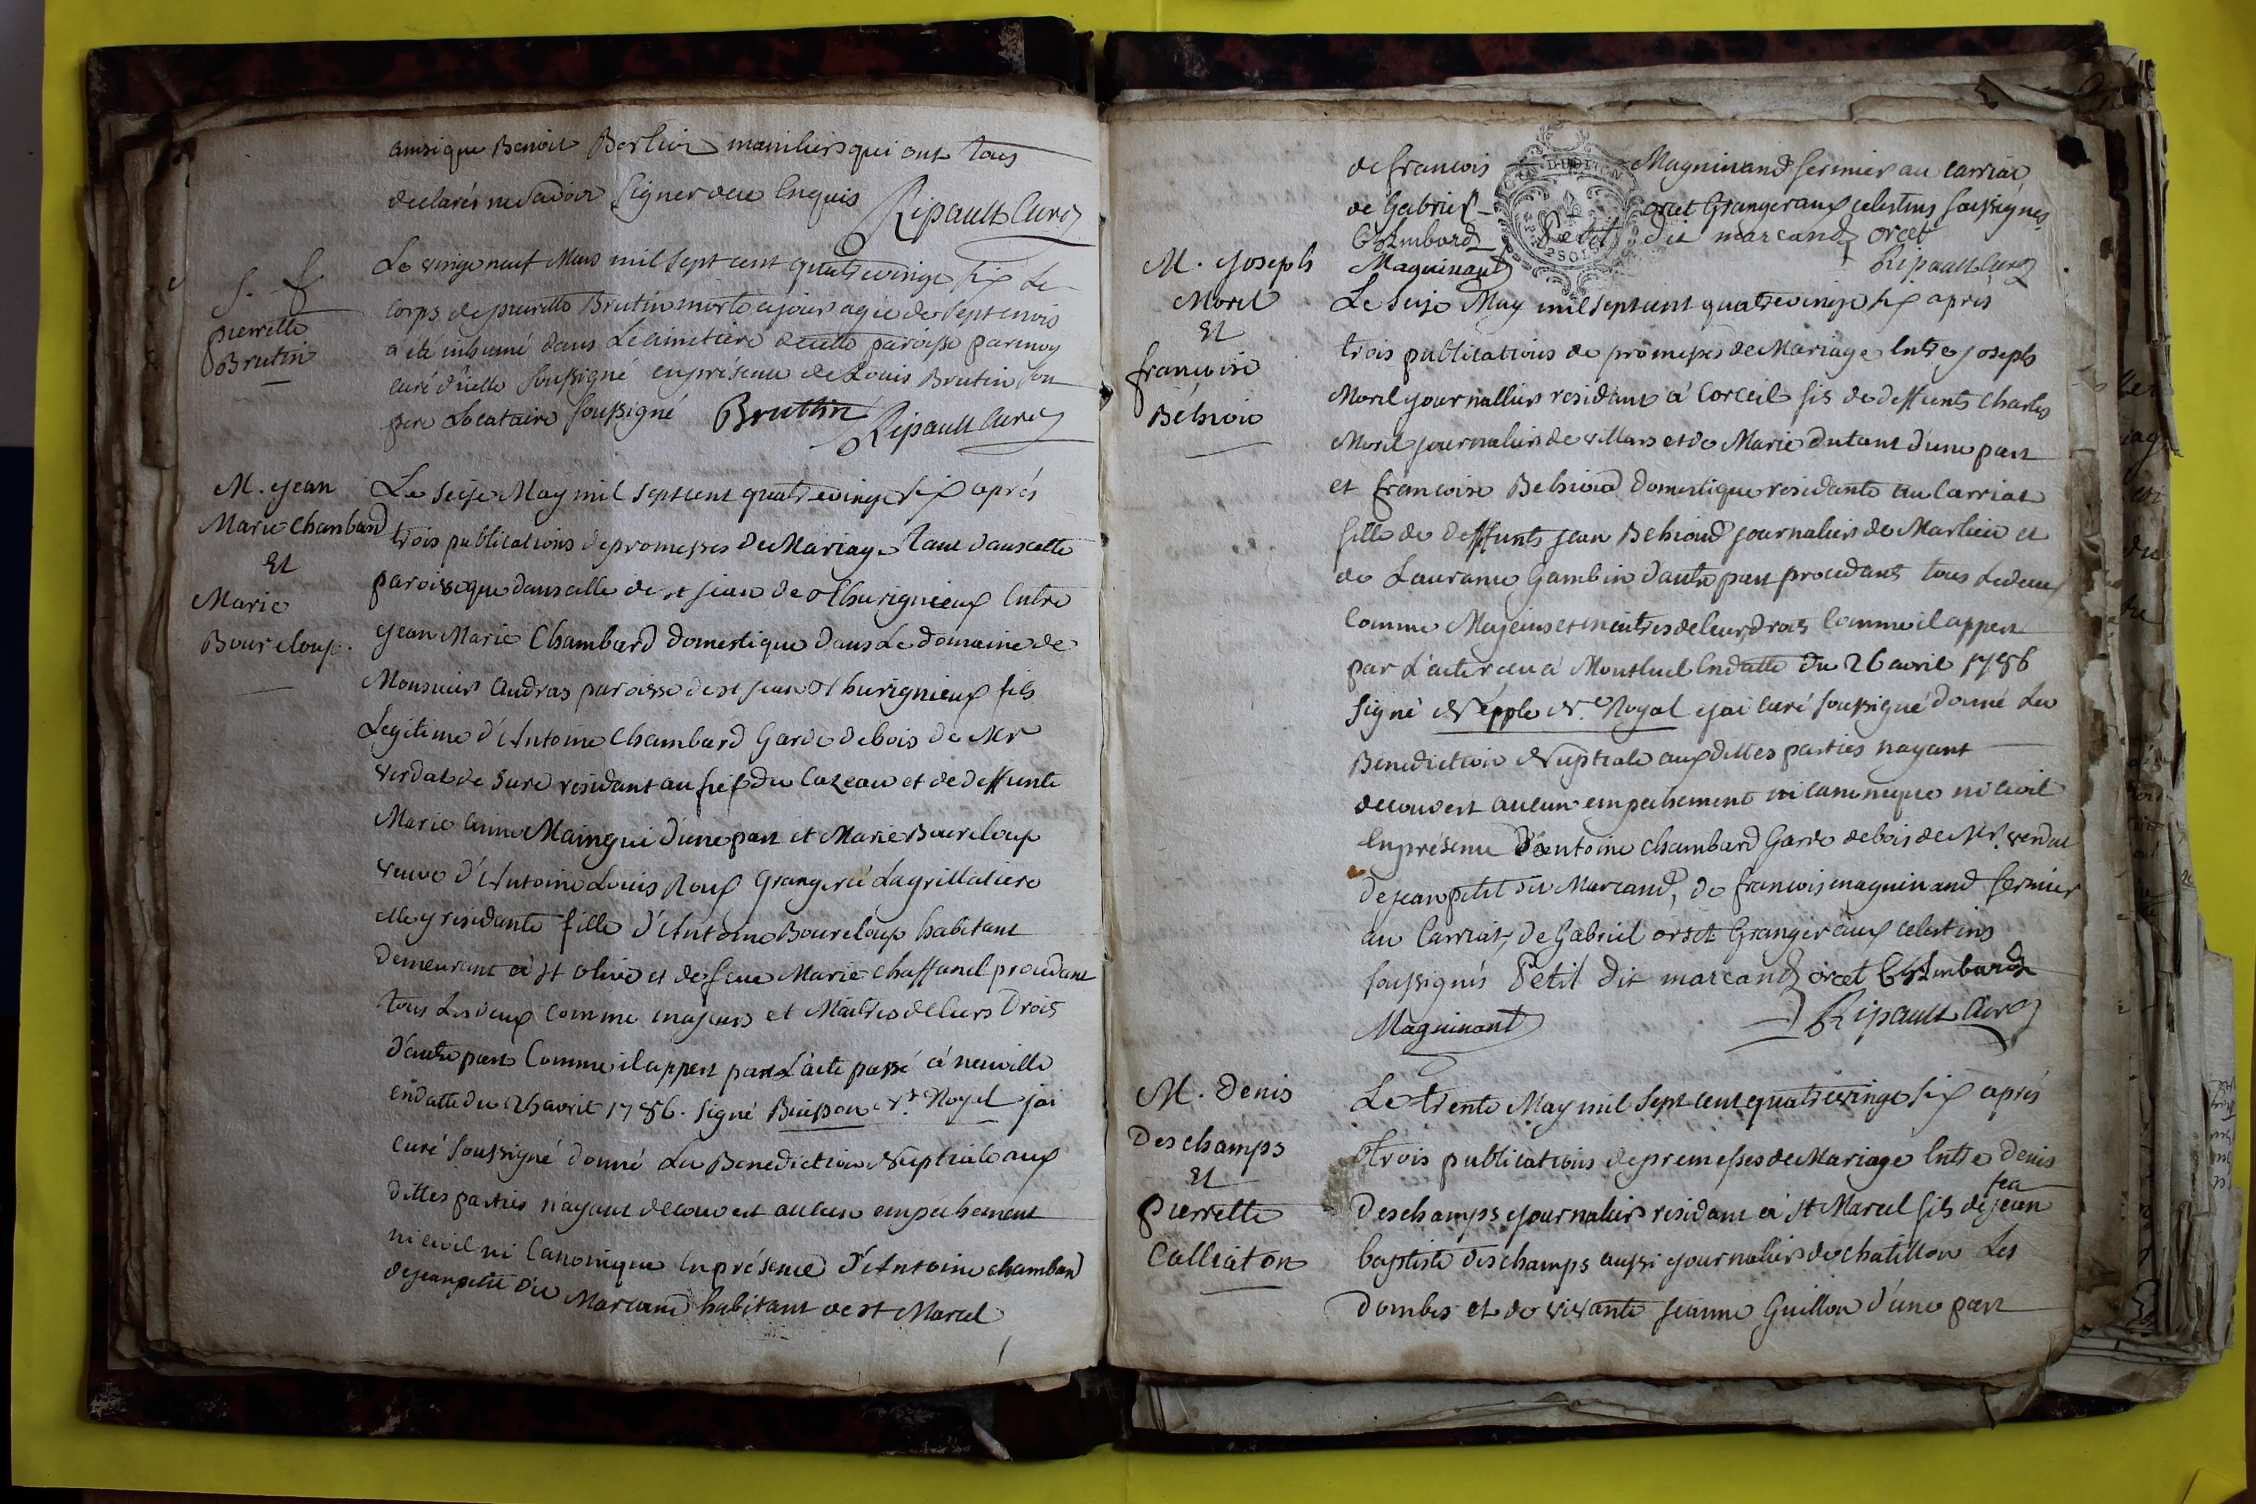 ainsi que Benoit Berlier manilier qui ont tous
déclarés ne savoir signer de ce enquis Ripault Curé
S. f.
pierrette
Brutin
Le vingt neuf Mars mil sept cent quatrevingt six Le
corps de pierrette Brutin morte agée de sept mois
a été inhumé dans Le cimetiere de cette paroisse par moy
curé d'icelle soussigné en présence de Louis Brutin son
pere soussigné Bruttin Ripault Curé
M. jean
Marie chambard
Et
Marie
Boureloup.
Le seize May mil sept cent quatrevingt six après
trois publications de promesses de Mariage tant dans cette
paroisse que dans celle de st jean de Thurignieux Entre
jean Marie Chambard domestique dans Le domaine de
Monsieur Andras paroisse de st jean Thurignieux fils
Legitime d'Antoine Chambard Garde de bois de Mr
verdat de Sure residant au fief du Cazeau et de deffunte
Marie Anne Maingui d'une part et Marie Boureloup
veuve d'Antoine Louis Roux Granger à Lagrillatiere
elle y residante fille d'Antoine Boureloup habitant
demeurant à st olive et de feue Marie chaffanel procedant
tous Les deux Comme majeurs et Maitres de leurs Drois
d'autre part Comme il appert par L'acte passé à neuville
en datte du avril 1786. signé Buisson Nre Royal jai
curé soussigné donné La Benediction Nuptiale aux
dittes parties n'ayant decouvert aucun empechement
ni civil ni Canonique En présence d'Antoine chambard
de jean petit dit Marcand habitant de st Marcel
de francois Maguinand fermier au carriat
de Gabriel orcet Granger aux celestins soussignés
Chambard Petit dit marcand orcet
Maguinant Ripault Curé
M. joseph
Morel
Et
francoise
Le seize May mil sept cent quatrevingt six après
trois publications de promesses de Mariage Entre joseph
Morel journallier residant à Corceil fils de deffunts Charles
Morel journalier de villars et de Marie dutant d'une part
et francoise domestique residante au Carriat
fille de deffunts jean journalier de Marlieu et
de Laurance Gambin d'autre part procedants tous Les deux
Comme Majeurs et maitres de leur drois Comme il appert
par L'acte recu à Montluel En datte du 26 avril 1786
signé Népple Nre Royal jai curé soussigné donné La
Benediction Nuptiale aux dittes parties nayant
decouvert aucun empechement ni canonique ni civil
En présence d'antoine chambard Garde de bois de Mr. verdat
de jean petit dit Marcand, de francois maguinand fermier
au Carriat, de Gabriel orset Granger aux celestins
soussignés Petit dit marcand orcet Chambard
Maguinant Ripault Curé
M. Denis
Deschamps
Et
pierrette
Calliat on
Le trente May mil sept cent quatrevingt six après
trois publications de promesses de Mariage Entre denis
feu
Deschamps journalier residant à st Marcel fils de jean
baptiste deschamps aussi journalier de chatillon Les
dombes et de vivante jeanne Guillon d'une part